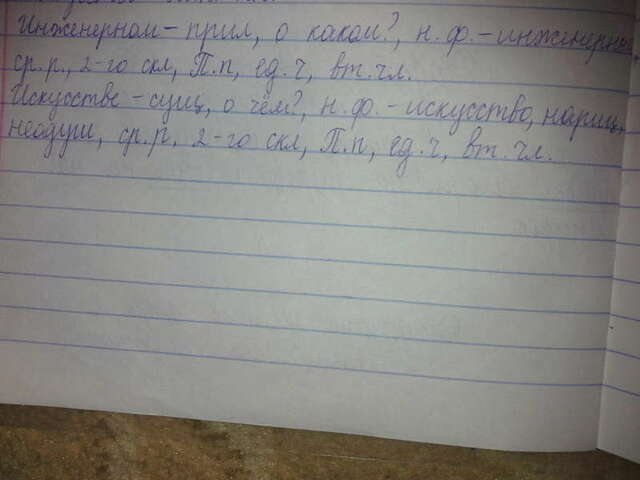 Инженерном - прил, о каком?, н. ф. - инженерный,
ср. р., 2-го скл, П.п, ед. ч, вт. чл.
Искусстве - сущ, о чём?, н. ф. - искусство, нариц,
неодуш, ср. р, 2-го скл, П.п, ед. ч, вт. чл.